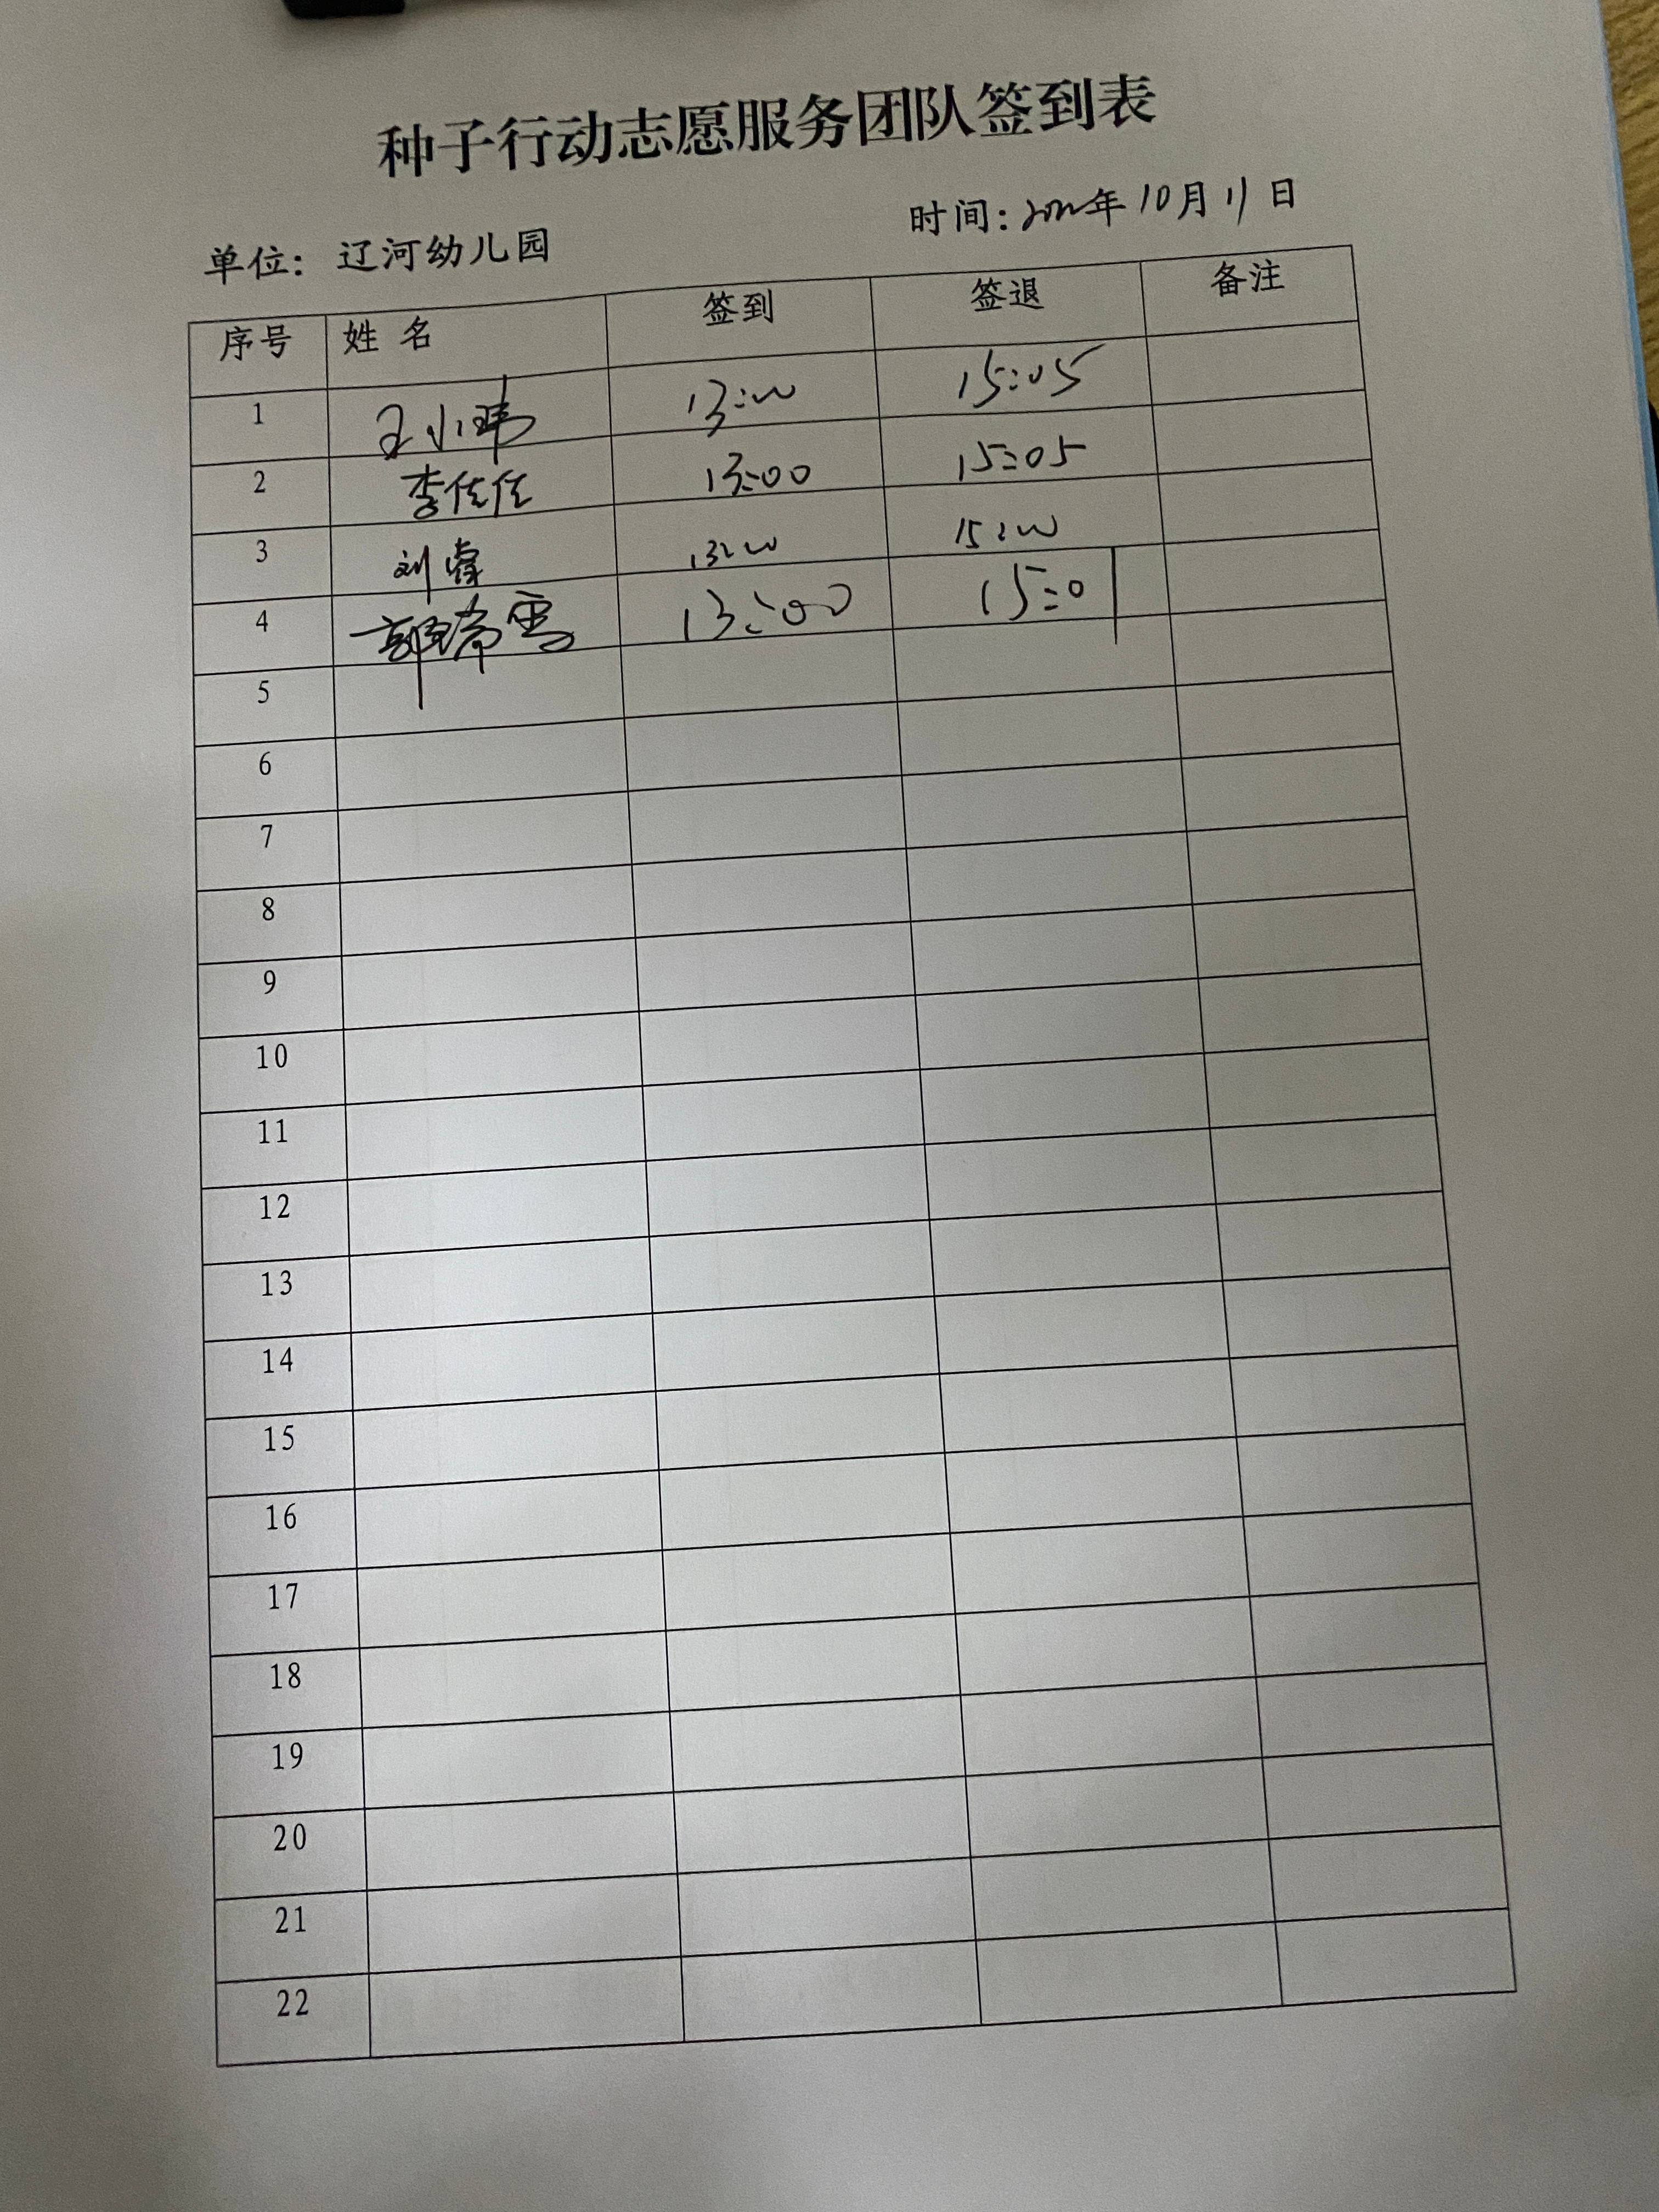 种子行动志愿服务团队签到表
单位：辽河幼儿园 时间：2022年10月11日
序号 姓名 签到 签退 备注
1 王小玮 13:00 15:05
2 李佳佳 13:00 15:05
3 刘睿 13:00 15:00
4 郭希雪 13:00 15:01
5
6
7
8
9
10
11
12
13
14
15
16
17
18
19
20
21
22